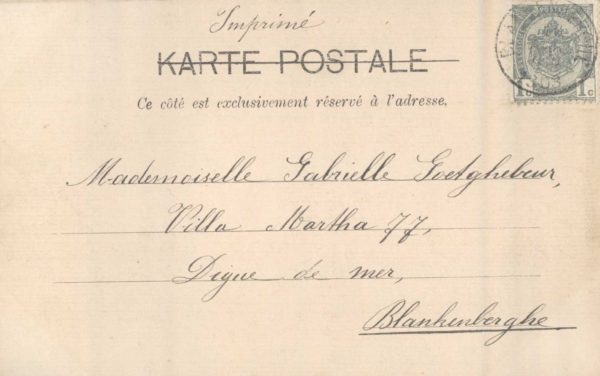 Imprimé
KARTE POSTALE
Ce côté est exclusivement réservé à l'adresse.
1c 1c
Mademoiselle Gabrielle Goetghebeur,
Villa Martha 77,
Digue de mer,
Blankenberghe